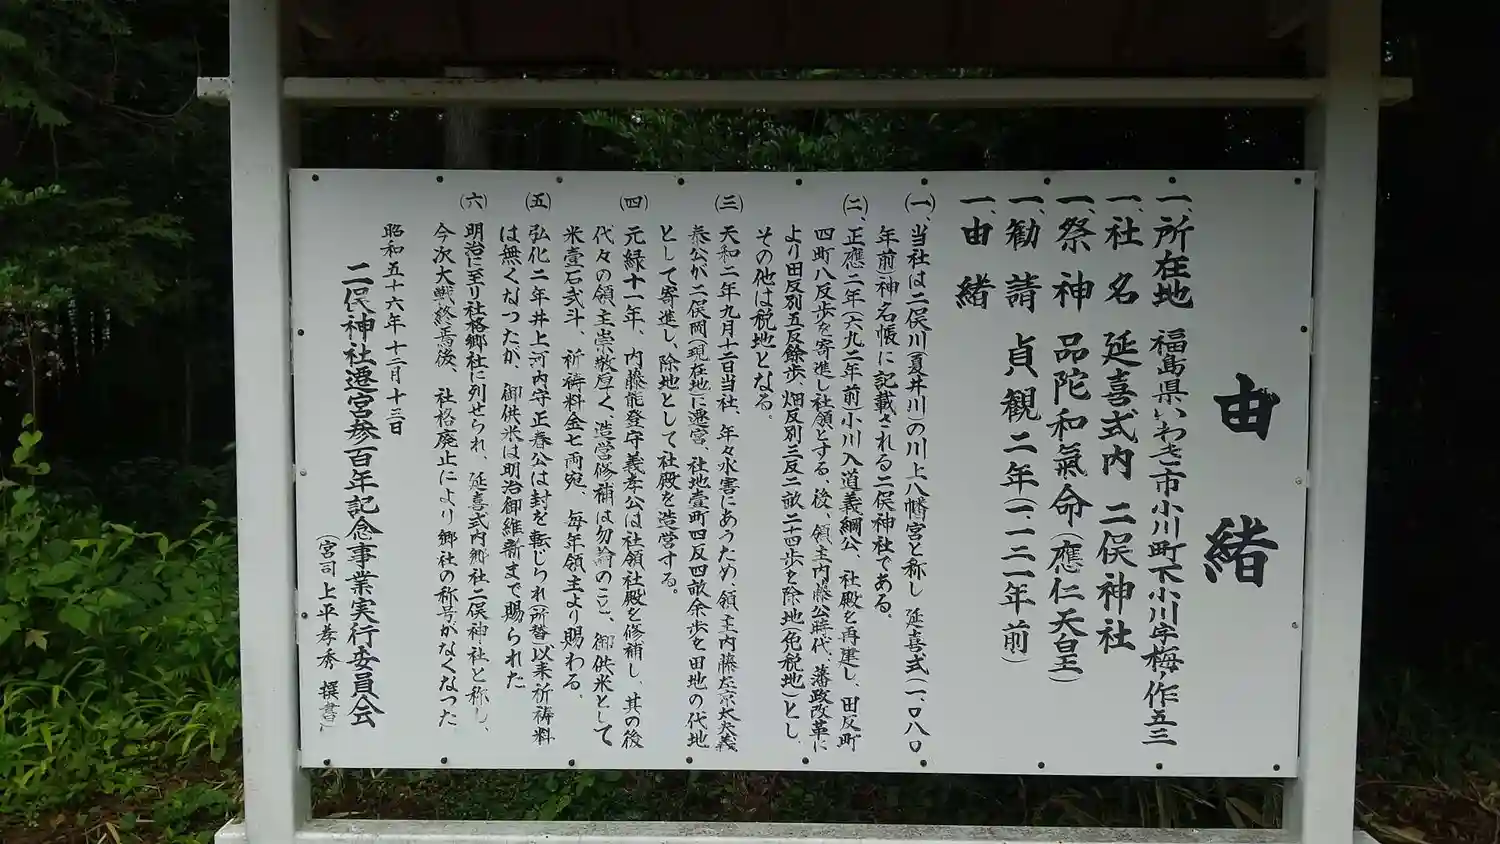 由緒
一、所在地 福島県いわき市小川町下小川字梅ヶ作五三
一、社名 延喜式内 二俣神社
一、祭神 品陀和氣命(應仁天皇)
一、勧請 貞観二年(一、一二一年前)
一、由緒
(一)、当社は二俣川(夏井川)の川上八幡宮と称し 延喜式(一、〇八〇
年前)神名帳に記載される二俣神社である。
(二)、正應二年(六九二年前)小川入道義綱公、社殿を再建し、田反町
四町八反歩を寄進し社領とする、後、領主内藤公時代、藩政改革に
より田反別五反餘歩、畑反別三反二畝二四歩を除地(免税地)とし、
その他は税地となる。
(三)天和二年九月十二日当社、年々水害にあうため、領主内藤左京太夫義
泰公が二俣岡(現在地)に遷宮、社地壹町四反四畝余歩を田地の代地
として寄進し、除地として社殿を造営する。
(四)元緑十一年、内藤能登守義孝公は社領社殿を修補し、其の後
代々の領主崇敬厚く、造営修補は勿論のこと、御供米として
米壹石弐斗、祈祷料金七両宛、毎年領主より賜わる。
(五)弘化二年井上河内守正春公は封を転じられ(所替)以来祈祷料
は無くなつたが、御供米は明治御維新まで賜られた
(六)明治に至り社格郷社に列せられ、延喜式内郷社二俣神社と称し、
今次大戦終焉後、社格廃止により郷社の称号がなくなつた
昭和五十六年十二月十三日
二俣神社遷宮参百年記念事業実行委員会
(宮司 上平孝秀 撰書)